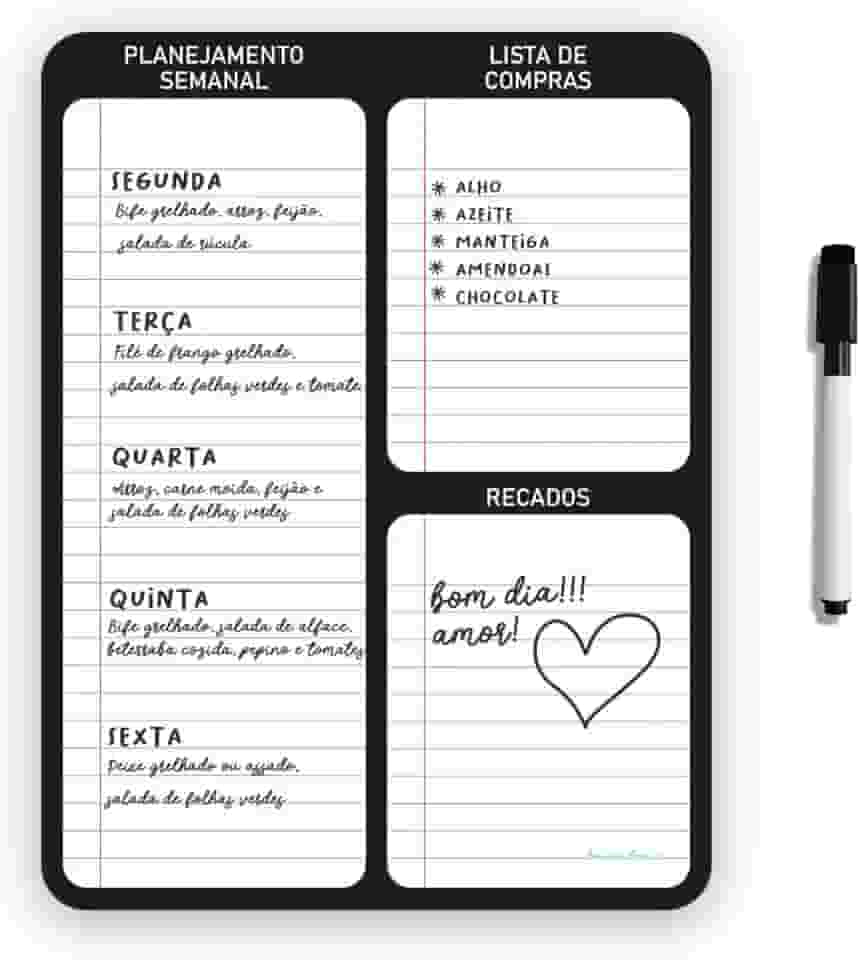 PLANEJAMENTO
SEMANAL
SEGUNDA
Bife grelhado, arroz, feijão,
salada de rúcula
TERÇA
Filé de frango grelhado,
salada de folhas verdes e tomate
QUARTA
Arroz, carne moída, feijão e
salada de folhas verdes
QUINTA
Bife grelhado, salada de alface,
beterraba cozida, pepino e tomates
SEXTA
Peixe grelhado ou assado,
salada de folhas verdes
LISTA DE
COMPRAS
* ALHO
* AZEITE
* MANTEIGA
* AMENDOAI
* CHOCOLATE
RECADOS
bom dia!!!
amor!